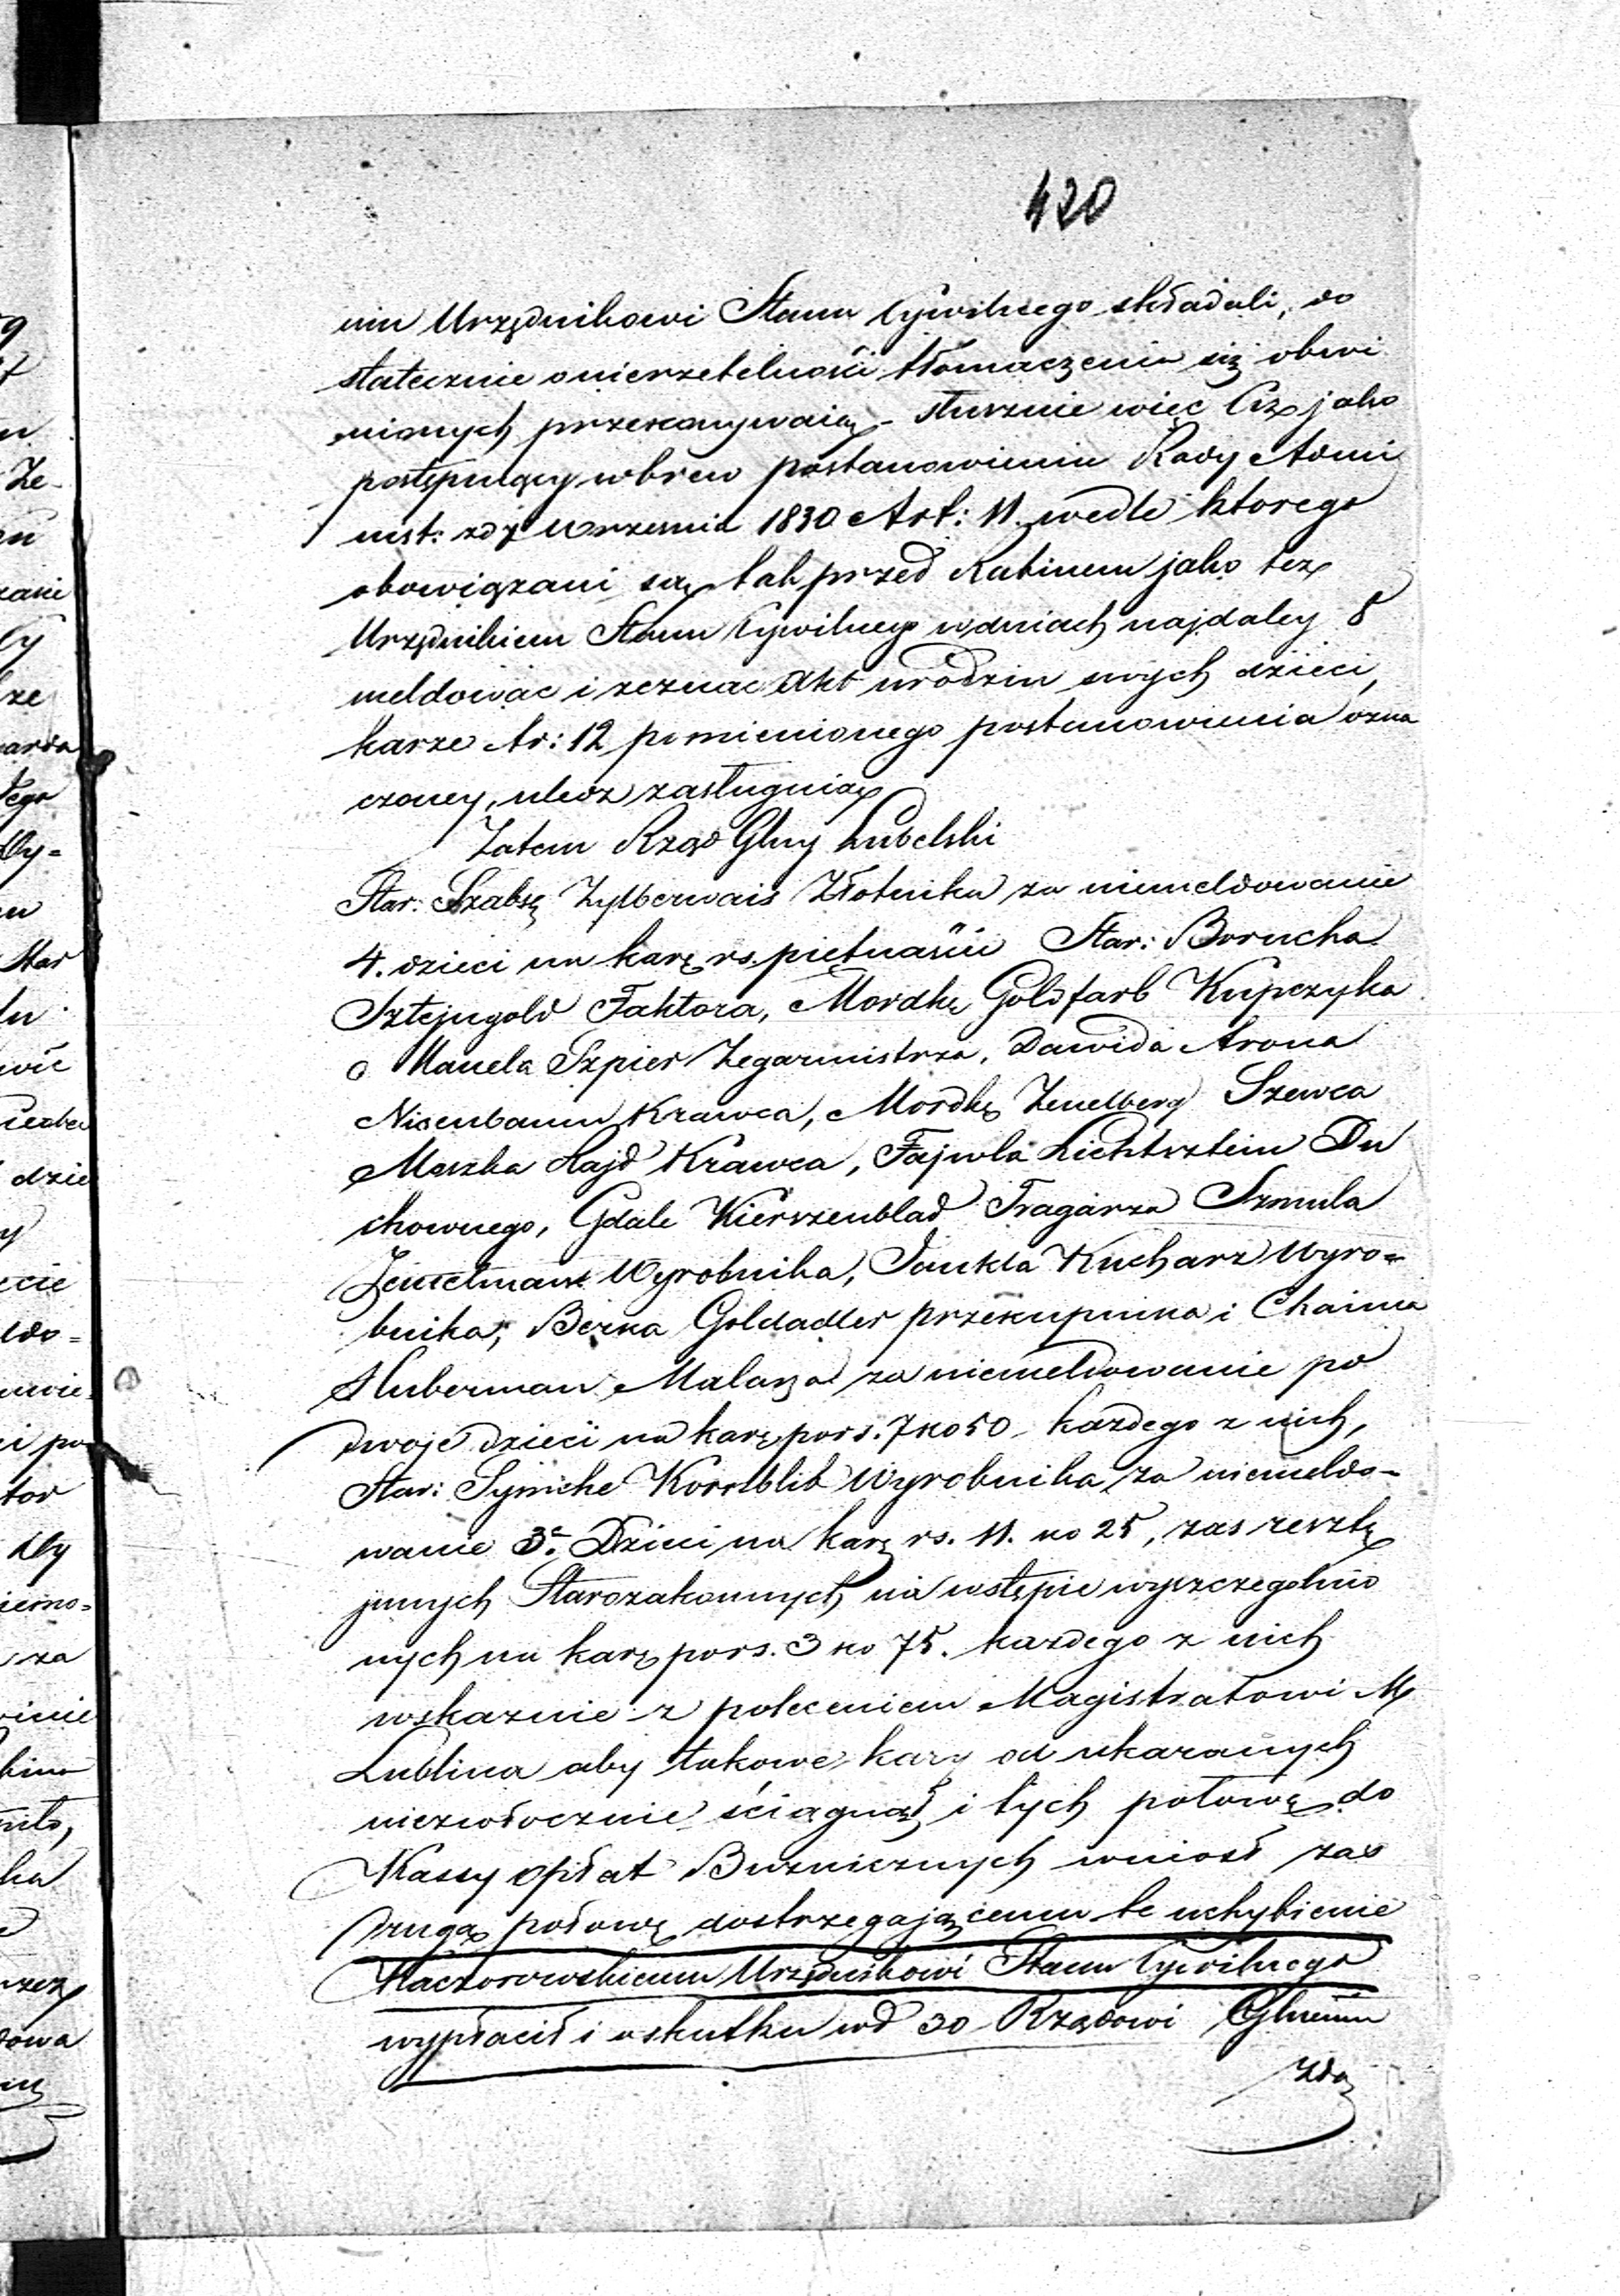 420
nin Urzędnikowi Stanu Cywilnego składali, do
statecznie o nierzetelności tłómaczenia się obwi
nionych przekonywaią - słusznie więc ciż jako
postępuiący wbrew postanowieniu Rady Admi
nist: z d 7 Września 1830 Art: 11. wedle ktorego
obowiązani są tak przed Rabinem jako też
Urzędnikiem Stanu Cywilnego w dniach najdaley 8
meldować i zeznać Akt urodzin swych dzieci,
karze Ar: 12 pomienionego postanowienia ozna
czoney, uledz zasługuią
Zatem Rząd Glny Lubelski
Star: Szabsę Zylberwais Złotnika za niemeldowanie
4. dzieci na karę rs. piętnaście Star: Borucha
Sztejngold Faktora, Mordkę Goldfarb Kupczyka
Manela Szpier Zegarmistrza, Dawida Arona
Nisenbaum Krawca, Mordkę Szewca
Moszka Hajd Krawca, Fajwla Lichtsztein Du
chownego, Gdale Kierszenblad Tragarza Szmula
Zemelman Wyrobnika, Jankla Kucharz Wyro=
bnika, Berka Goldadler przekupnika i Chaima
Huberman Malarza za niemeldowanie po
dwoje dzieci na karę po rs. 7 ko 50 każdego z nich,
Star: Symche Kornblit Wyrobnika za niemeldo-
wanie 3e Dzieci na karę rs. 11. ko 25, zas resztę
jnnych Starozakonnych na wstępie wyszczegolnio
nych na karę po rs. 3 ko 75. każdego z nich
wskaznie z poleceniem Magistratowi M
Lublina aby takowe kary od ukaranych
niezwłocznie ściągnął i tych połowę do
Kassy opłat Bużnicznych wniosł zas
drugą połowę dostrzegającemu te uchybienie
Kaczorowskiemu Urzędnikowi Stanu Cywilnego
wypłacił i o skutku w d 30 Rządowi Glnemu
zda